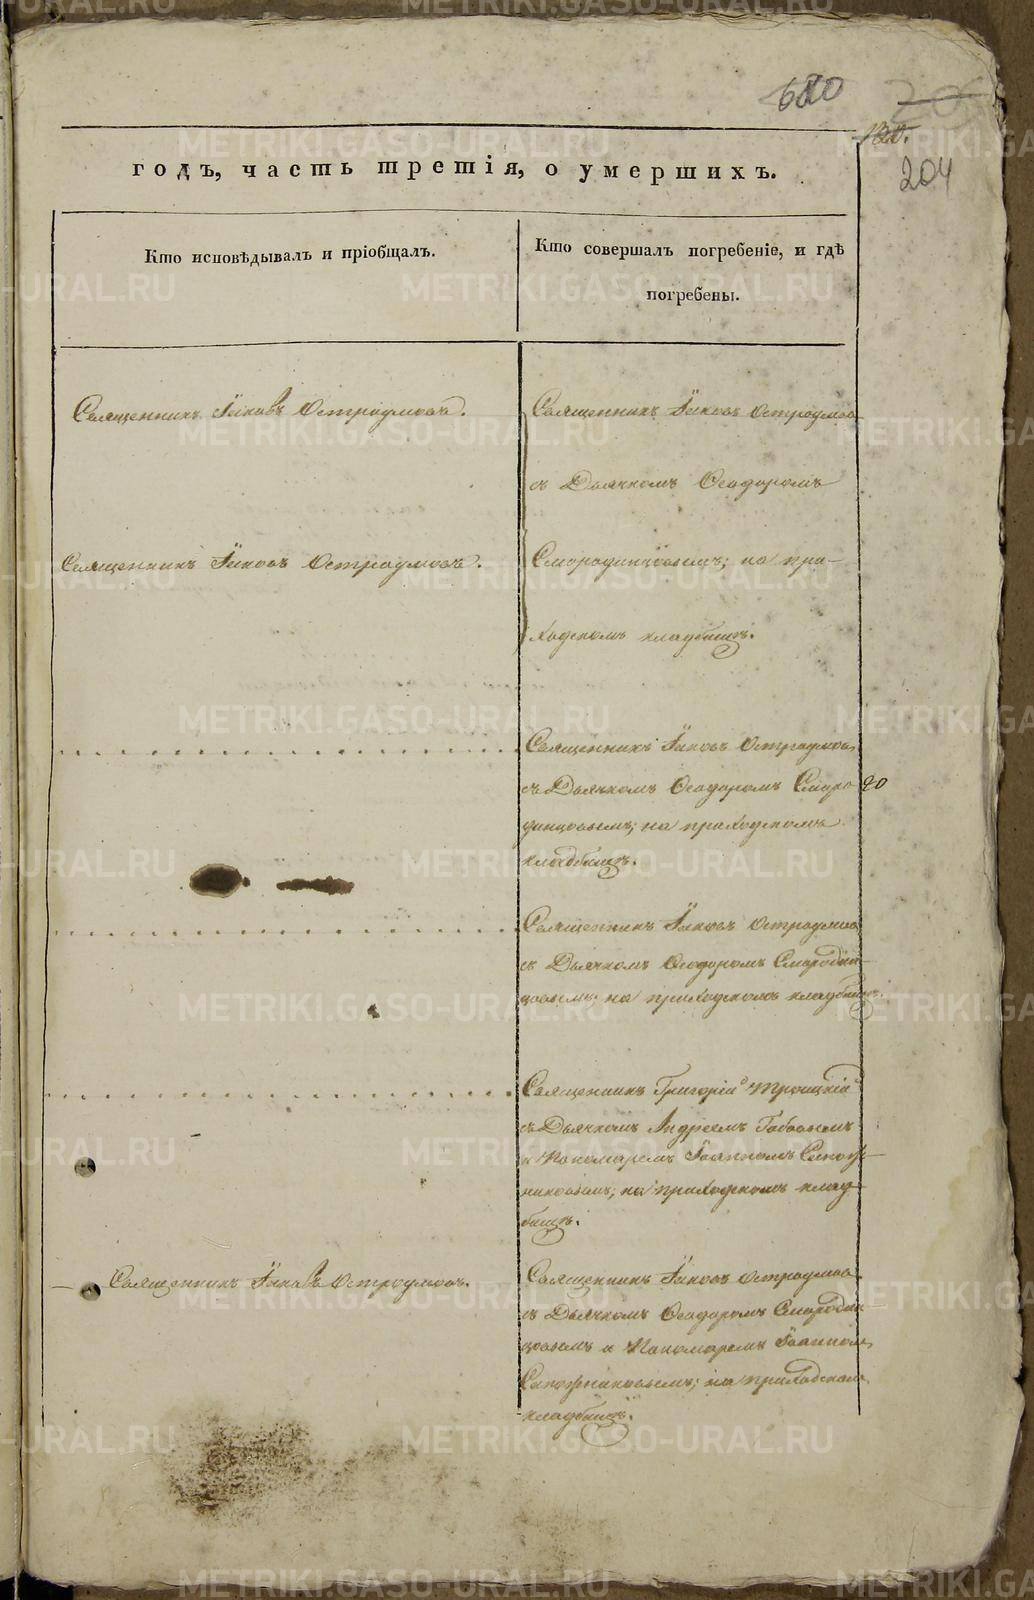 680
204
годъ, часть третія, о умершихъ.
Кто исповѣдывалъ и пріобщалъ.
Кто совершалъ погребеніе, и гдѣ
погребены.
Священникъ Іаковъ Остроумовъ.
Священникъ Іаковъ Остроумовъ
съ Дьячкомъ Ѳеодоромъ
Священникъ Іаковъ Остроумовъ.
Смородинцовымъ; на при-
ходскомъ кладбищѣ.
Священникъ Іаковъ Остроумовъ
съ Дьячкомъ Ѳеодоромъ Сморо
20
динцовымъ; на приходскомъ
кладбищѣ.
Священникъ Іаковъ Остроумовъ
съ Дьячкомъ Ѳеодоромъ Смородин-
цовымъ на приходскомъ кладбищѣ.
Священникъ Григорій Троицкій
съ Дьячкомъ Андреемъ
и Пономаремъ Іоанномъ Сапож-
никовымъ; на приходскомъ клад-
бищѣ.
Священникъ Іаковъ Остроумовъ.
Священникъ Іаковъ Остроумовъ
съ Дьячкомъ Ѳеодоромъ Смородин-
цовымъ и Пономаремъ Іоанном
Сапожниковымъ; на приходском
кладбищѣ.
METRIKI.GASO-URAL.RU